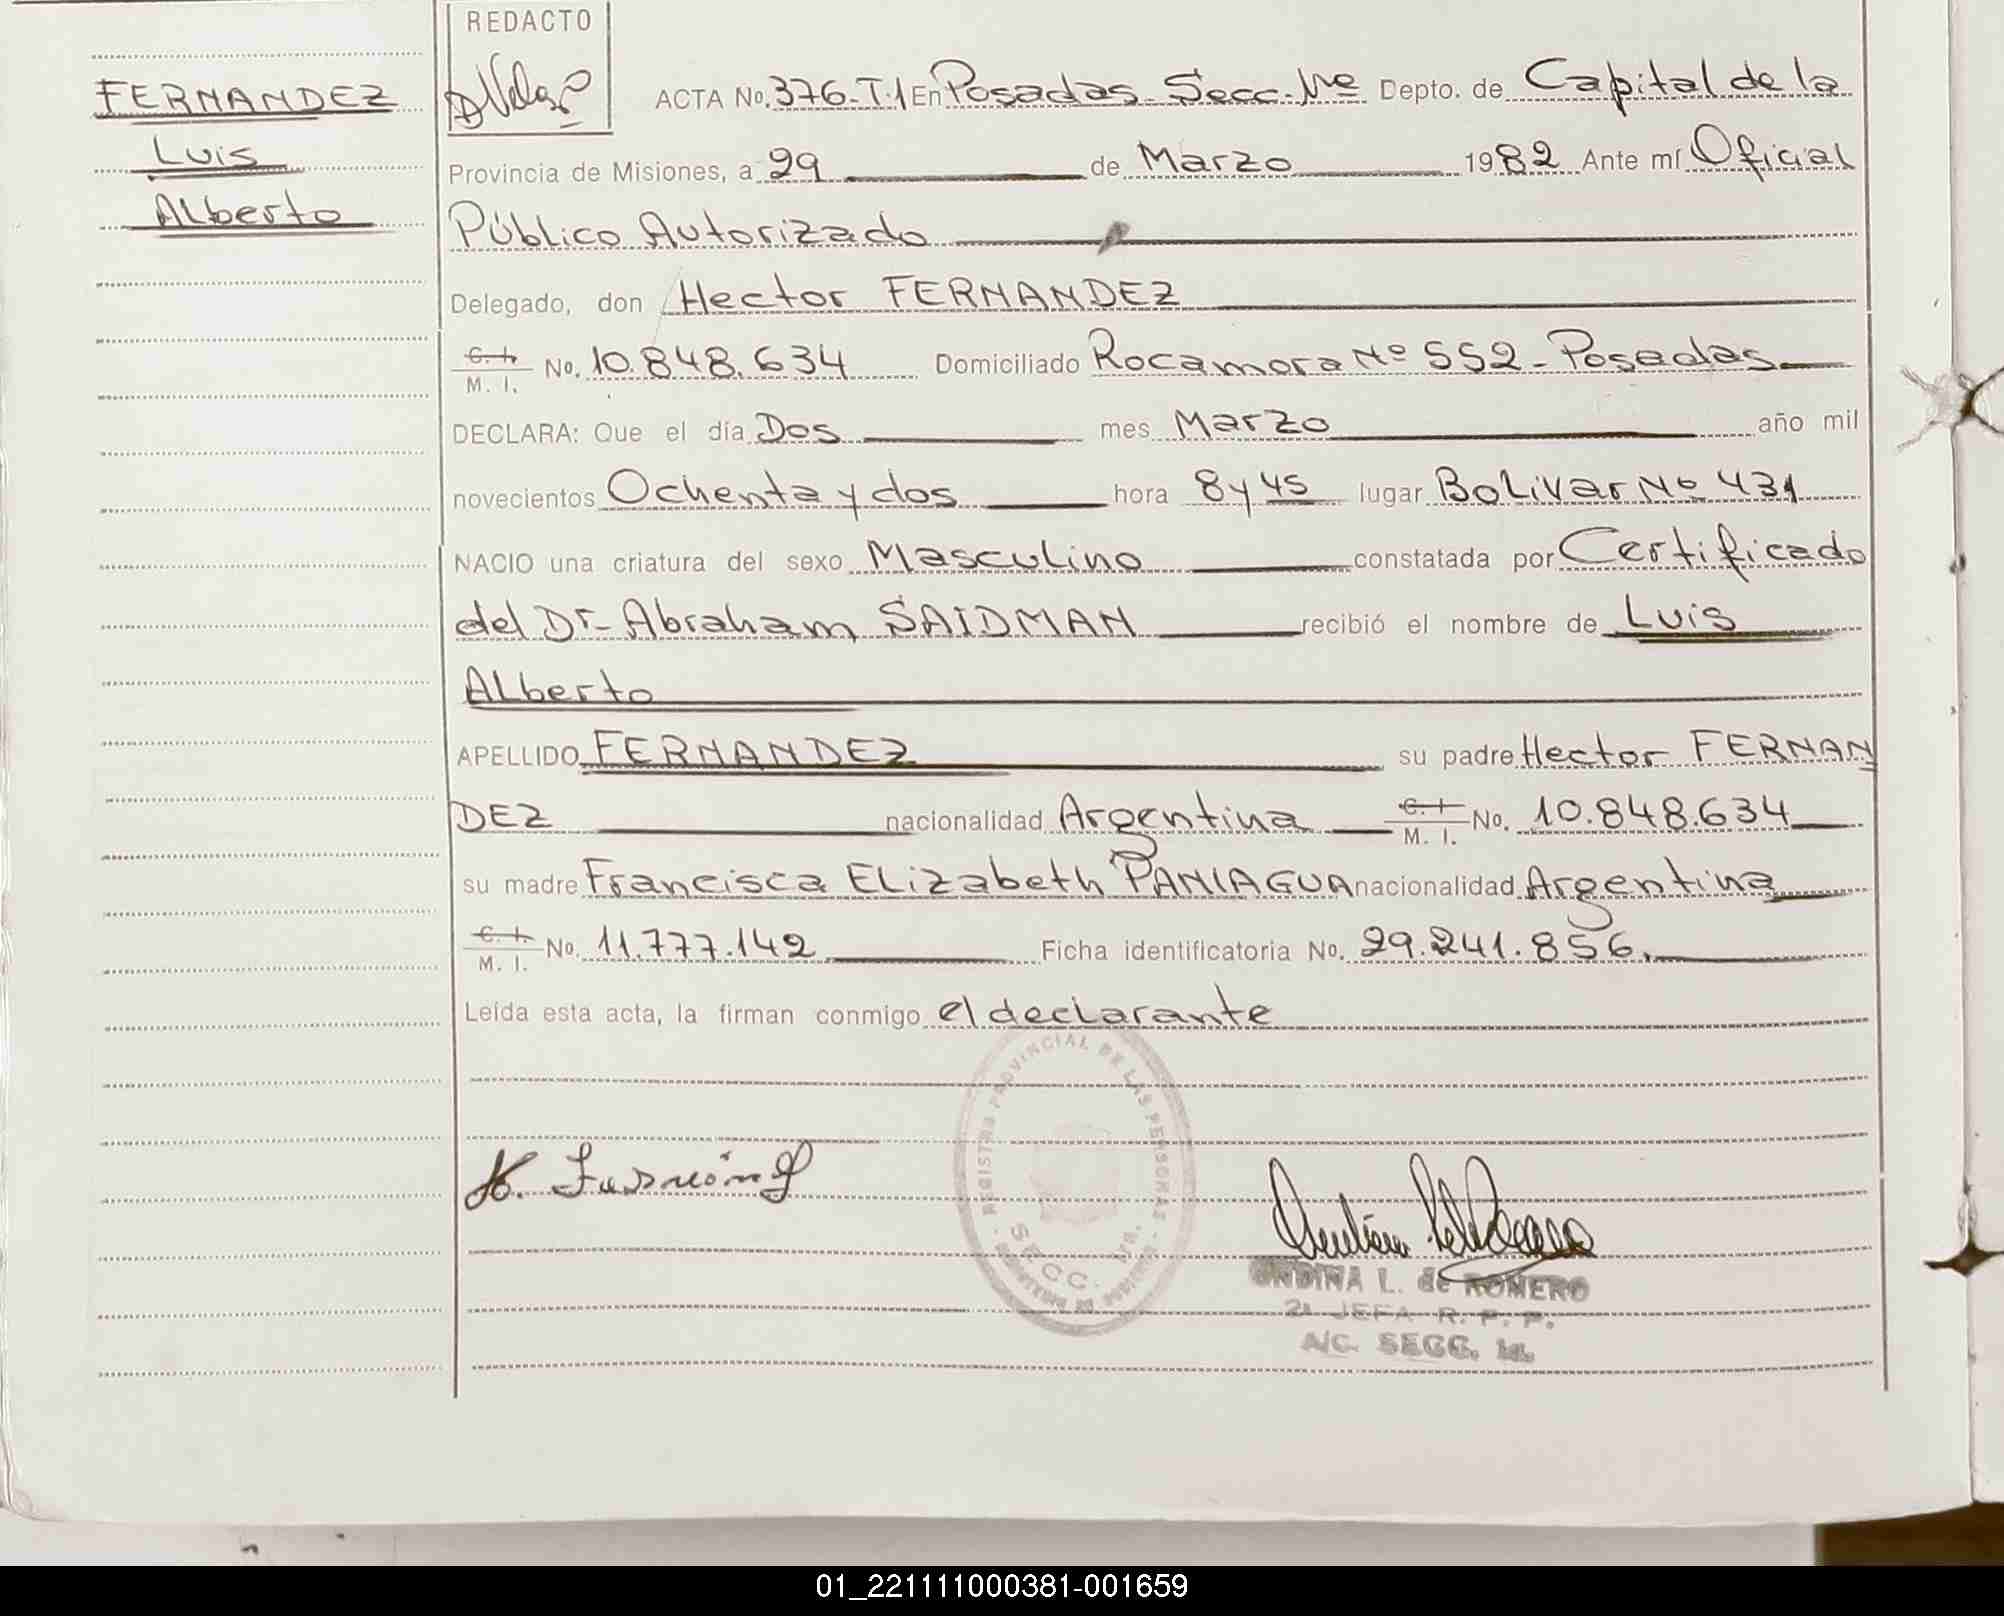 REDACTO
FERNANDEZ
Luis
Alberto
ACTA No. 376-T.1 En Posadas. Secc. 1ra Depto. de Capital de la
Provincia de Misiones, a 29 de Marzo 1982 Ante mí Oficial
Público Autorizado
Delegado, don Hector FERNANDEZ
C. I.
M. I. No. 10.848.634 Domiciliado Rocamora Nº 552 - Posadas
DECLARA: Que el día Dos mes Marzo año mil
novecientos Ochenta y dos hora 8 y 45 lugar Bolivar Nº 431
NACIO una criatura del sexo Masculino constatada por Certificado
del Dr. Abraham SAIDMAN recibió el nombre de Luis
Alberto
APELLIDO FERNANDEZ su padre Hector FERNAN
DEZ nacionalidad Argentina C. I. M. I. No. 10.848.634
su madre Francisca Elizabeth PANIAGUA nacionalidad Argentina
C. I.
M. I. No. 11.777.142 Ficha identificatoria No. 29.241.856.
Leída esta acta, la firman conmigo el declarante
REGISTRO PROVINCIAL DE LAS PERSONAS
SECC. 1ra.
ONDINA L. de ROMERO
2ª JEFA R. P. P.
A/C. SECC. 1a.
01_221111000381-001659